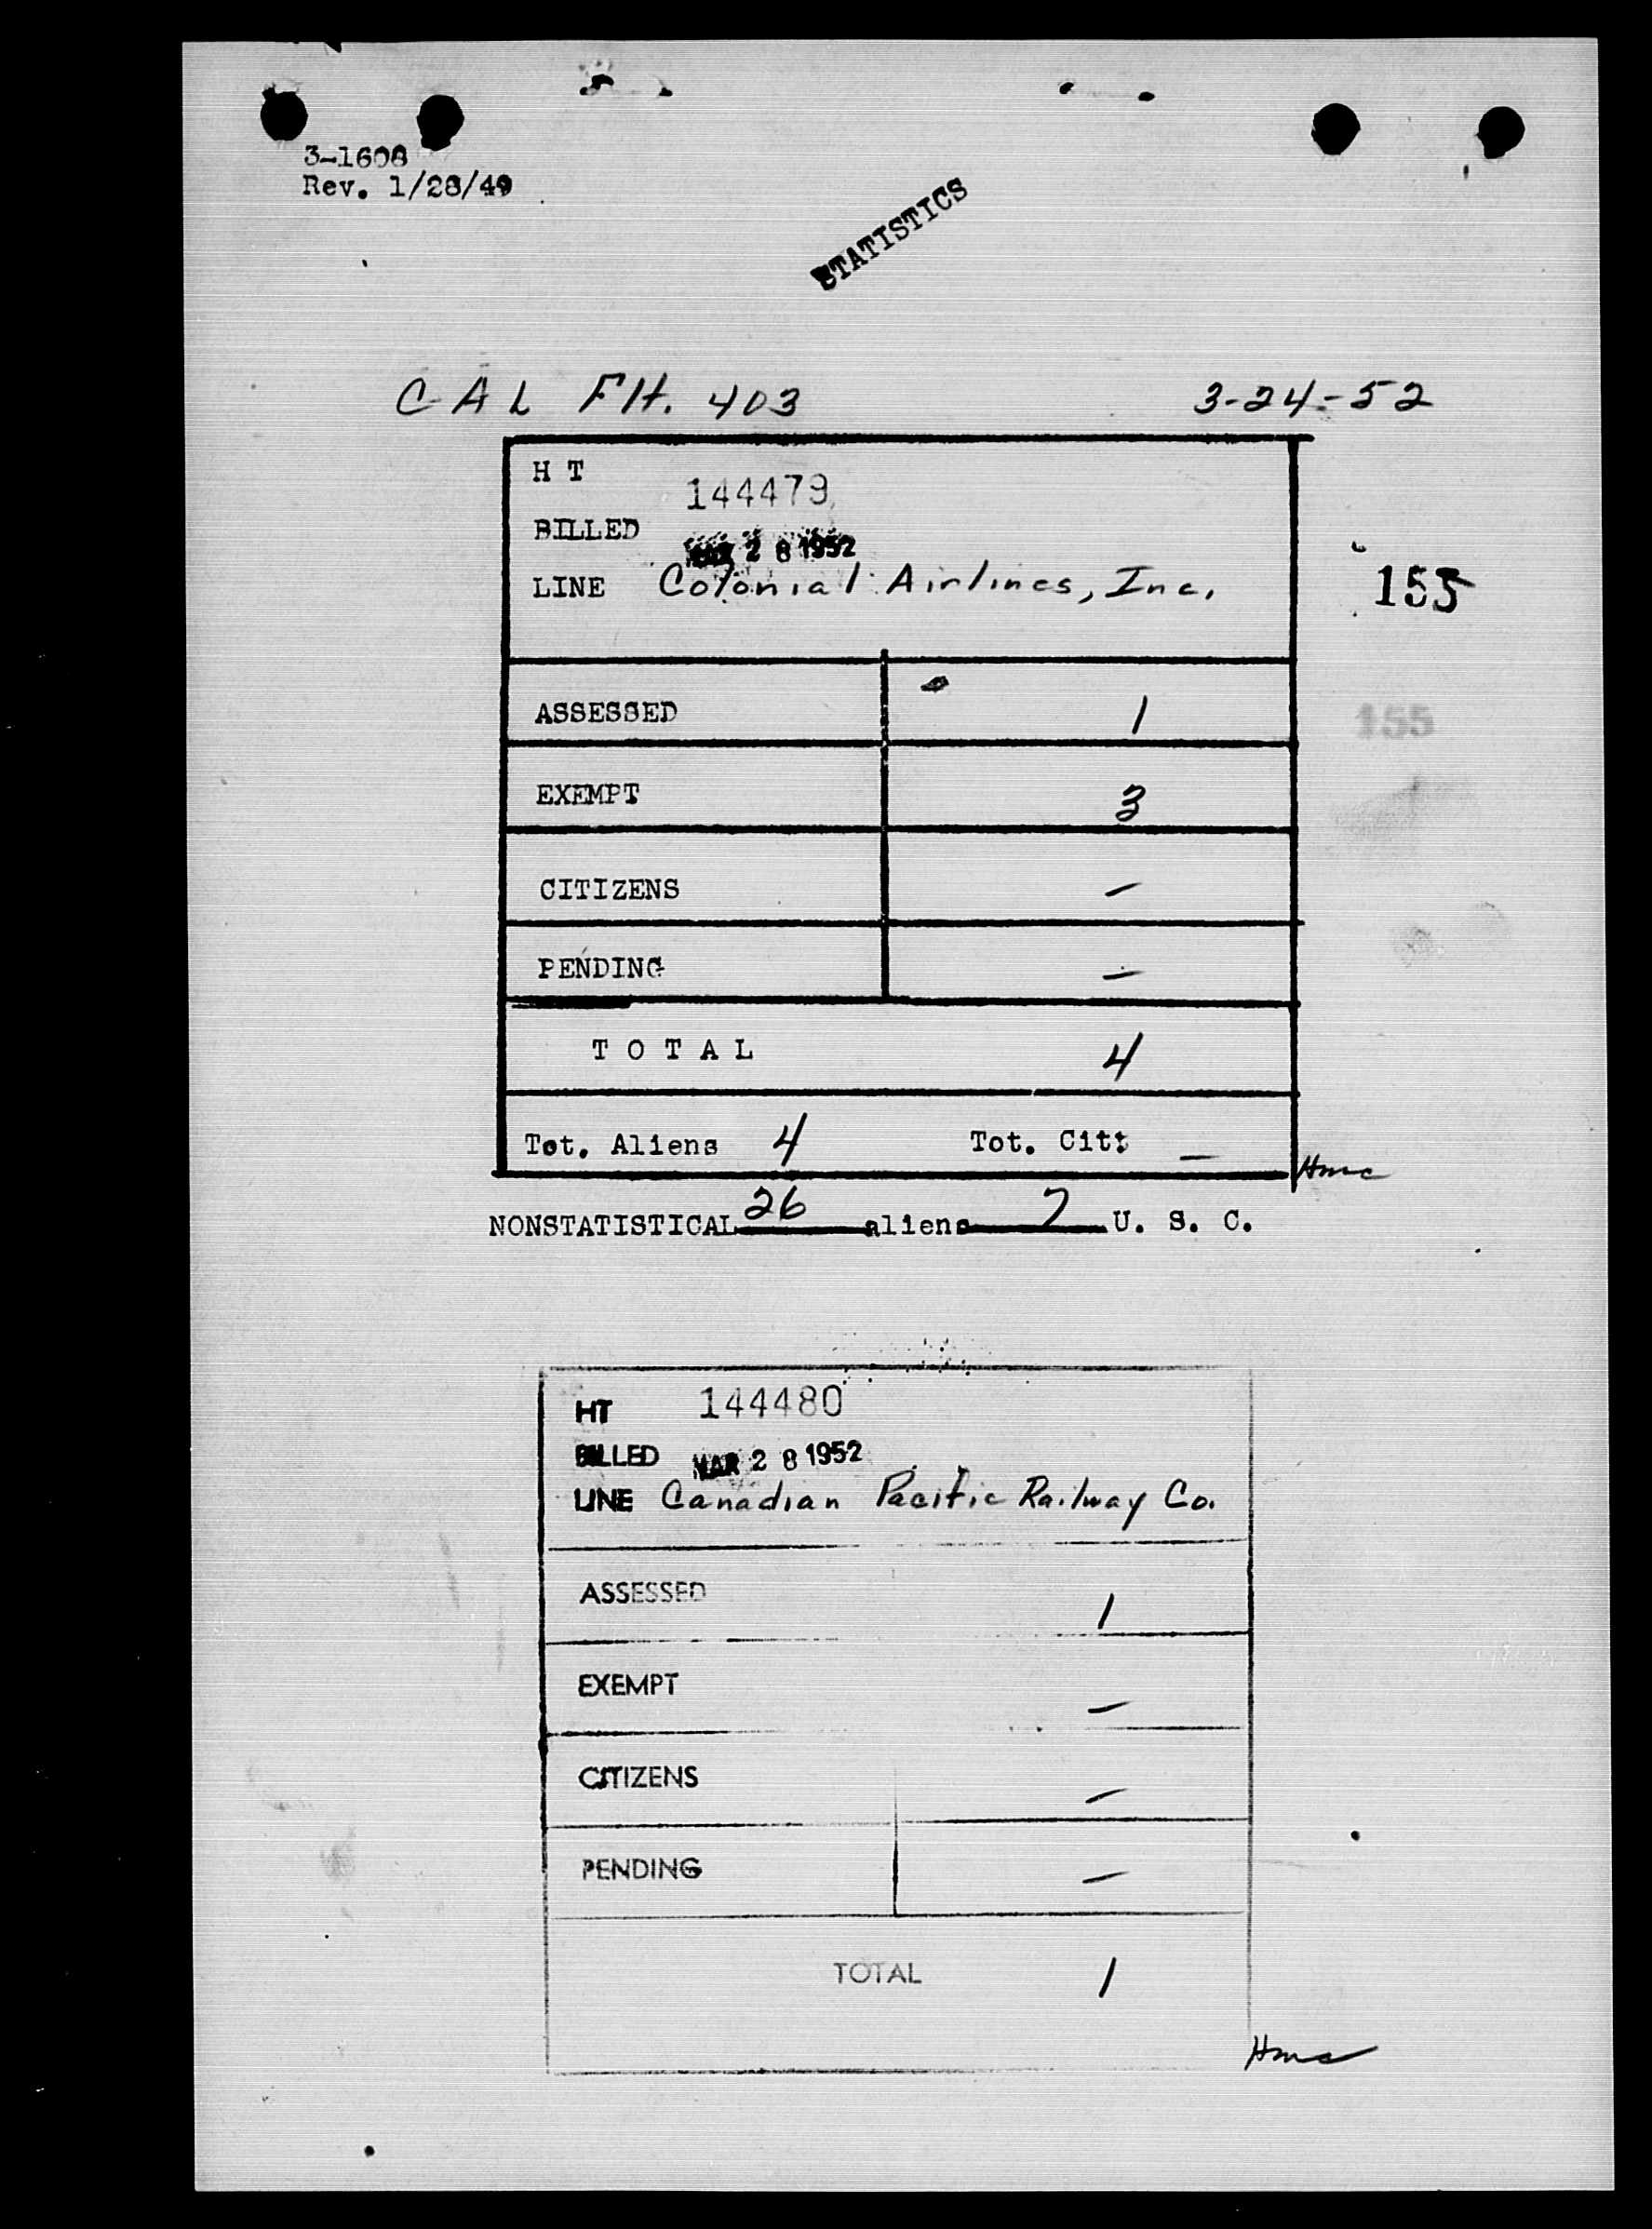 3-1608
Rev. 1/28/49
STATISTICS
CAL Flt. 403 3-24-52
H T 144479
BILLED MAR 28 1952
LINE Colonial Airlines, Inc.
155
ASSESSED 1
155
EXEMPT 3
CITIZENS —
PENDING —
T O T A L 4
Tot. Aliens 4 Tot. Cit: —
Hmc
NONSTATISTICAL 26 aliens 7 U. S. C.
HT 144480
BILLED MAR 28 1952
LINE Canadian Pacific Railway Co.
ASSESSED 1
EXEMPT —
CITIZENS —
PENDING —
TOTAL 1
Hmc